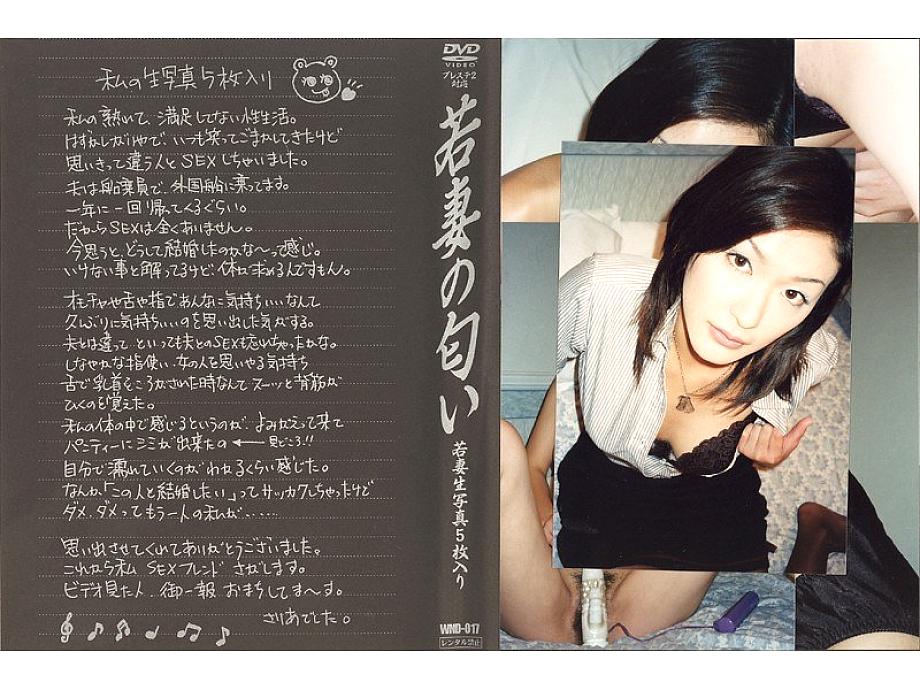 私の生写真5枚入り
私の熱いで、満足してない性生活。
はずかしがりやで、いつも笑ってごまかしてきたけど
思いきって違う人とSEXしちゃいました。
夫は船乗員で、外国船に乗ってます。
一年に一回帰ってくるぐらい。
だからSEXは全くありません。
今思うと、どうして結婚したのかな〜って感じ。
いけない事と解ってるけど、体が求めるんですもん。
オモチャや舌や指であんなに気持ちいいなんて
久んぶりに気持ちいいのを思い出した気がする。
夫とは違って、といっても夫とのSEXも忘れちゃったかな。
しなやかな指使い、女の人を思いやる気持ち
舌で乳首をころがされた時なんてスーッと背筋が
ひくのを覚えた。
私の体の中で感じるというのが、よみがえって来て
パンティーにシミが出来たの ← 見どころ!!
自分で濡れていくのがわかるくらい感じた。
なんか、「この人と結婚したい」ってサッカクしちゃったけど
ダメ、ダメってもう一人の私が......
思い出させてくれてありがとうございました。
これから私 SEXフレンド さがします。
ビデオ見た人、御一報 おまちしてま〜す。
さりあでした。
DVD
VIDEO
プレステ2
対応
若妻の匂い
若妻生写真5枚入り
WND-017
レンタル禁止